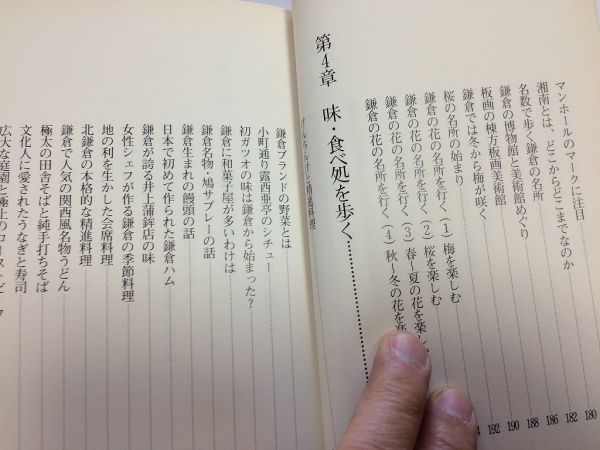 マンホールのマークに注目
180
湘南とは、どこからどこまでなのか
182
名数で歩く鎌倉の名所
186
鎌倉の博物館と美術館めぐり
188
板画の棟方板画美術館
190
鎌倉では冬から梅が咲く
192
桜の名所の始まり
鎌倉の花の名所を行く(1) 梅を楽しむ
鎌倉の花の名所を行く(2) 桜を楽しむ
鎌倉の花の名所を行く(3) 春〜夏の花を楽し
鎌倉の花の名所を行く(4) 秋〜冬の花を
第4章 味・食べ処を歩く
精進料理
鎌倉ブランドの野菜とは
小町通り露西亜亭のシチュー
初ガツオの味は鎌倉から始まった?
鎌倉に和菓子屋が多いわけは
鎌倉名物・鳩サブレーの話
鎌倉生まれの饅頭の話
日本で初めて作られた鎌倉ハム
鎌倉が誇る井上蒲鉾店の味
女性シェフが作る鎌倉の季節料理
地の利を生かした会席料理
北鎌倉の本格的な精進料理
鎌倉で人気の関西風名物うどん
極太の田舎そばと純手打ちそば
文化人に愛されたうなぎと寿司
広大な庭園と極上のローストビーフ